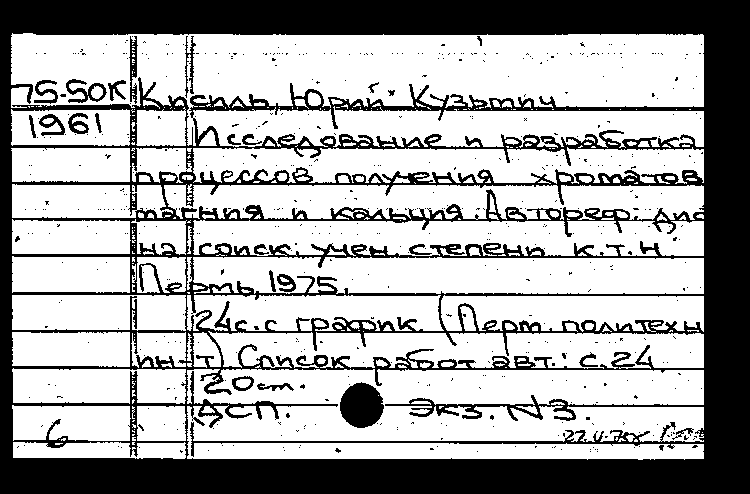 75-50К Кисиль, Юрий Кузьмич
1961
Исследование и разработка
процессов получения хроматов
магния и кальция. Автореф. дис
на соиск. учен. степени к.т.н.
Пермь, 1975.
24с. с график. (Перм. политехн
ин-т) Список работ авт.: с.24
20см.
ДСП. Экз. N3.
6